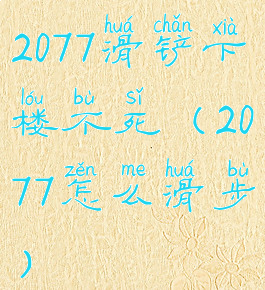 huá chǎn xià
2077滑铲下
lóu bù sǐ
楼不死（20
zěn me huá bù
77怎么滑步
）